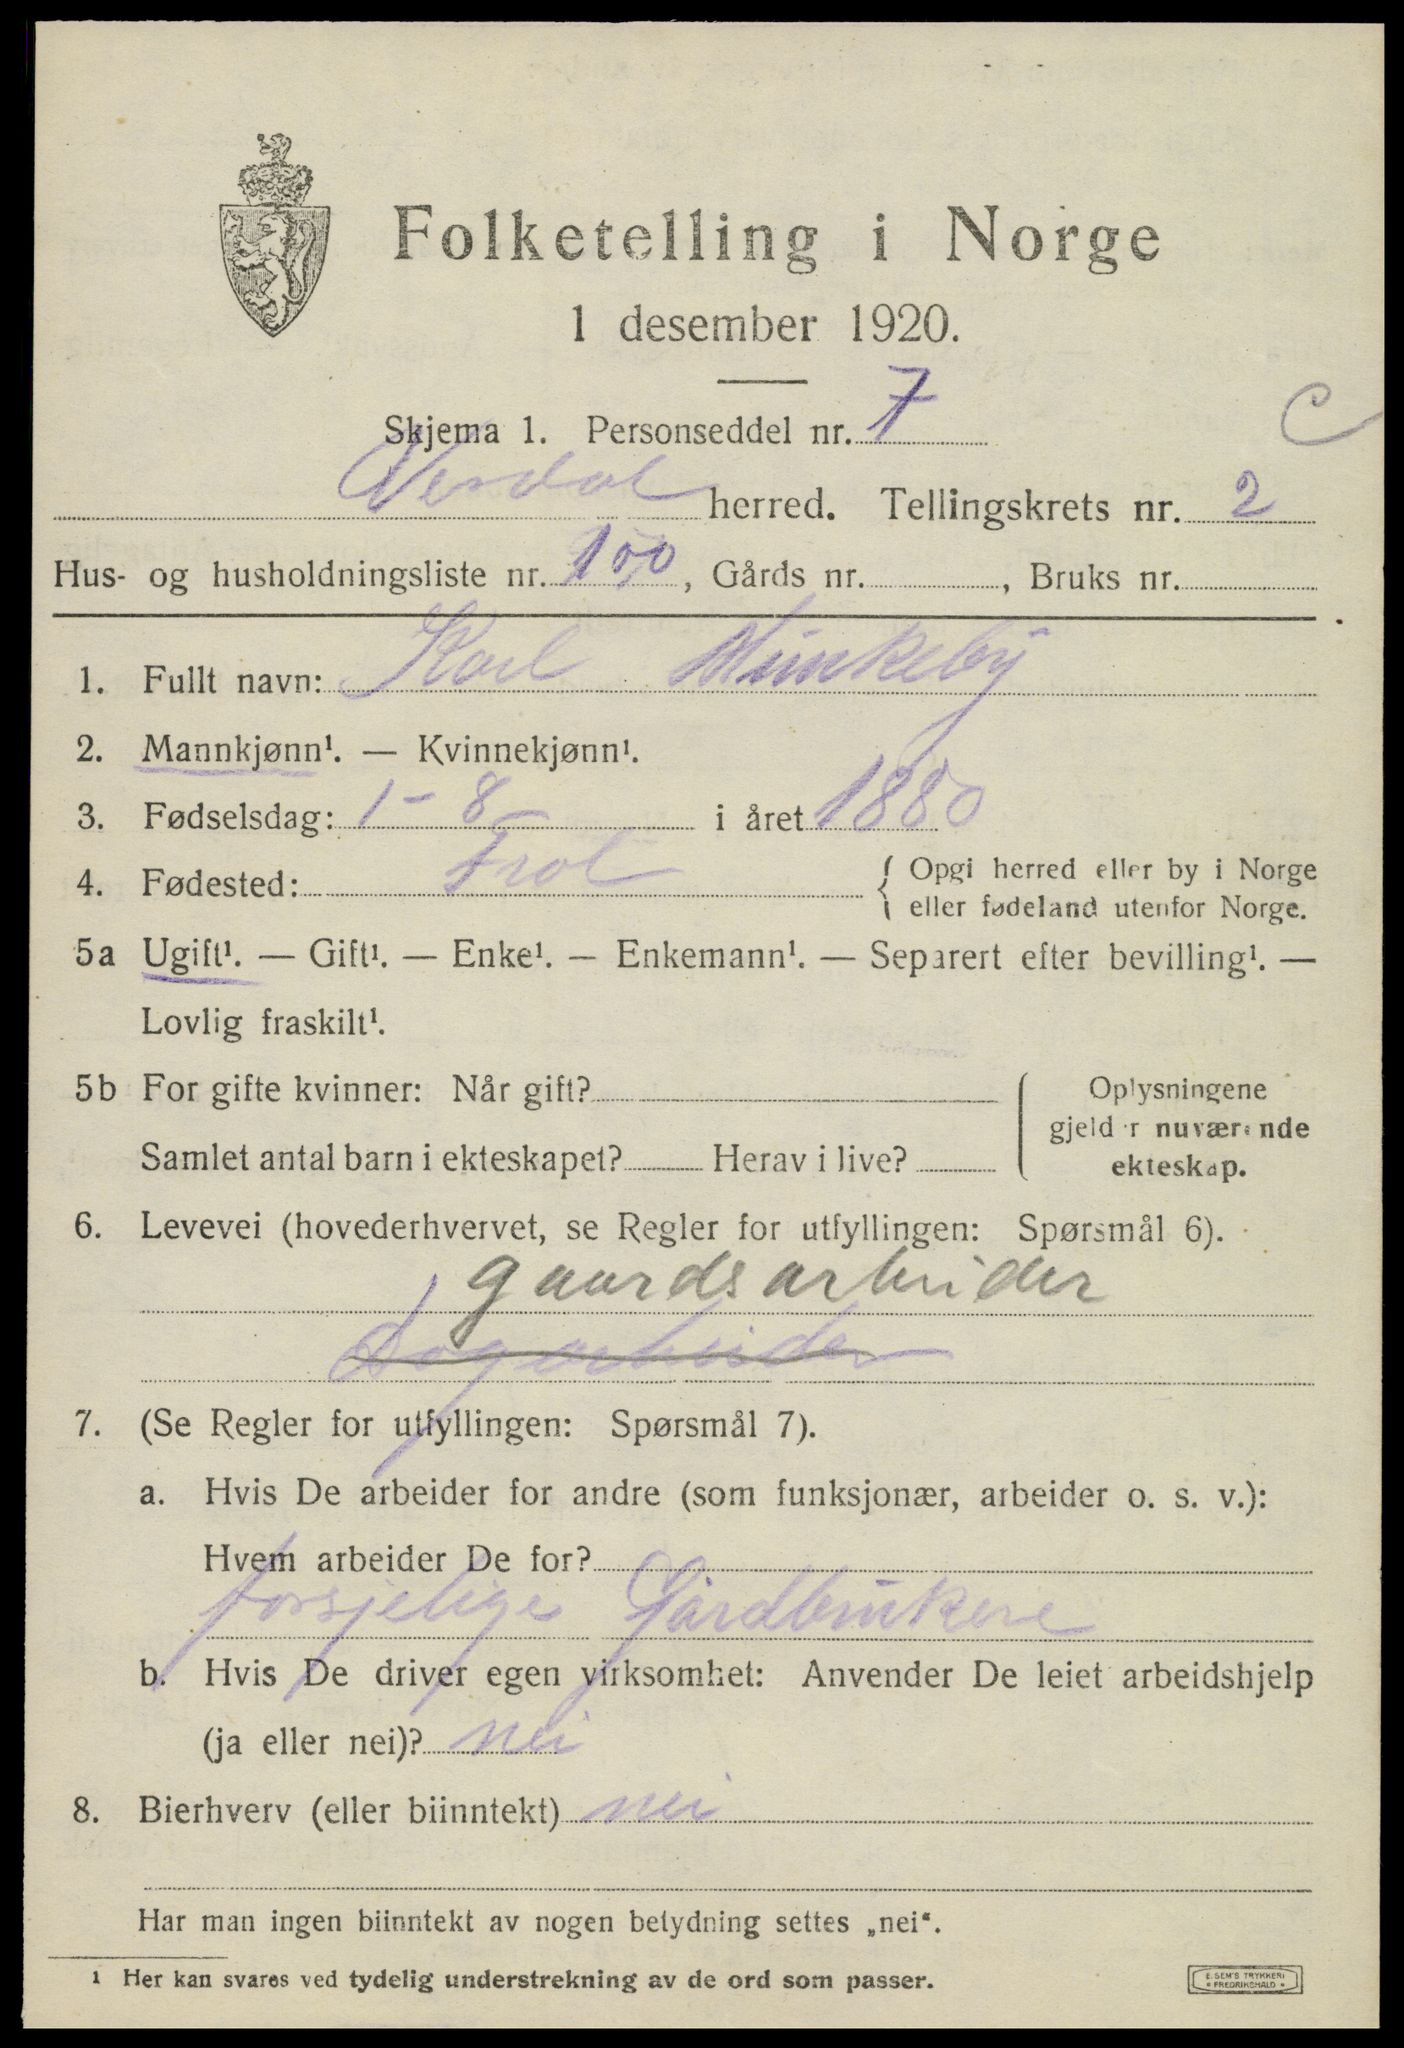 Folketelling i Norge
1 desember 1920.
Skjema 1. Personseddel nr. 7
C
Verdal herred. Tellingskrets nr. 2
Hus- og husholdningsliste nr. 100, Gårds nr. , Bruks nr.
1. Fullt navn: Karl Munkeby
2. Mannkjønn¹. — Kvinnekjønn¹.
3. Fødselsdag: 1-8 i året 1880
4. Fødested: Frol { Opgi herred eller by i Norge
eller fødeland utenfor Norge.
5a Ugift¹. — Gift¹. — Enke¹. — Enkemann¹. — Separert efter bevilling¹. —
Lovlig fraskilt¹.
5b For gifte kvinner: Når gift?
Samlet antal barn i ekteskapet? Herav i live?
Oplysningene
gjelder nuværende
ekteskap.
6. Levevei (hovederhvervet, se Regler for utfyllingen: Spørsmål 6).
gaardsarbeider
Dagarbeider
7. (Se Regler for utfyllingen: Spørsmål 7).
a. Hvis De arbeider for andre (som funksjonær, arbeider o. s. v.):
Hvem arbeider De for?
forsjelige Gårdbrukere
b. Hvis De driver egen virksomhet: Anvender De leiet arbeidshjelp
(ja eller nei)? nei
8. Bierhverv (eller biinntekt) nei
Har man ingen biinntekt av nogen betydning settes „nei“.
1 Her kan svares ved tydelig understrekning av de ord som passer.
E. SEM'S TRYKKERI
• FREDRIKSHALD •